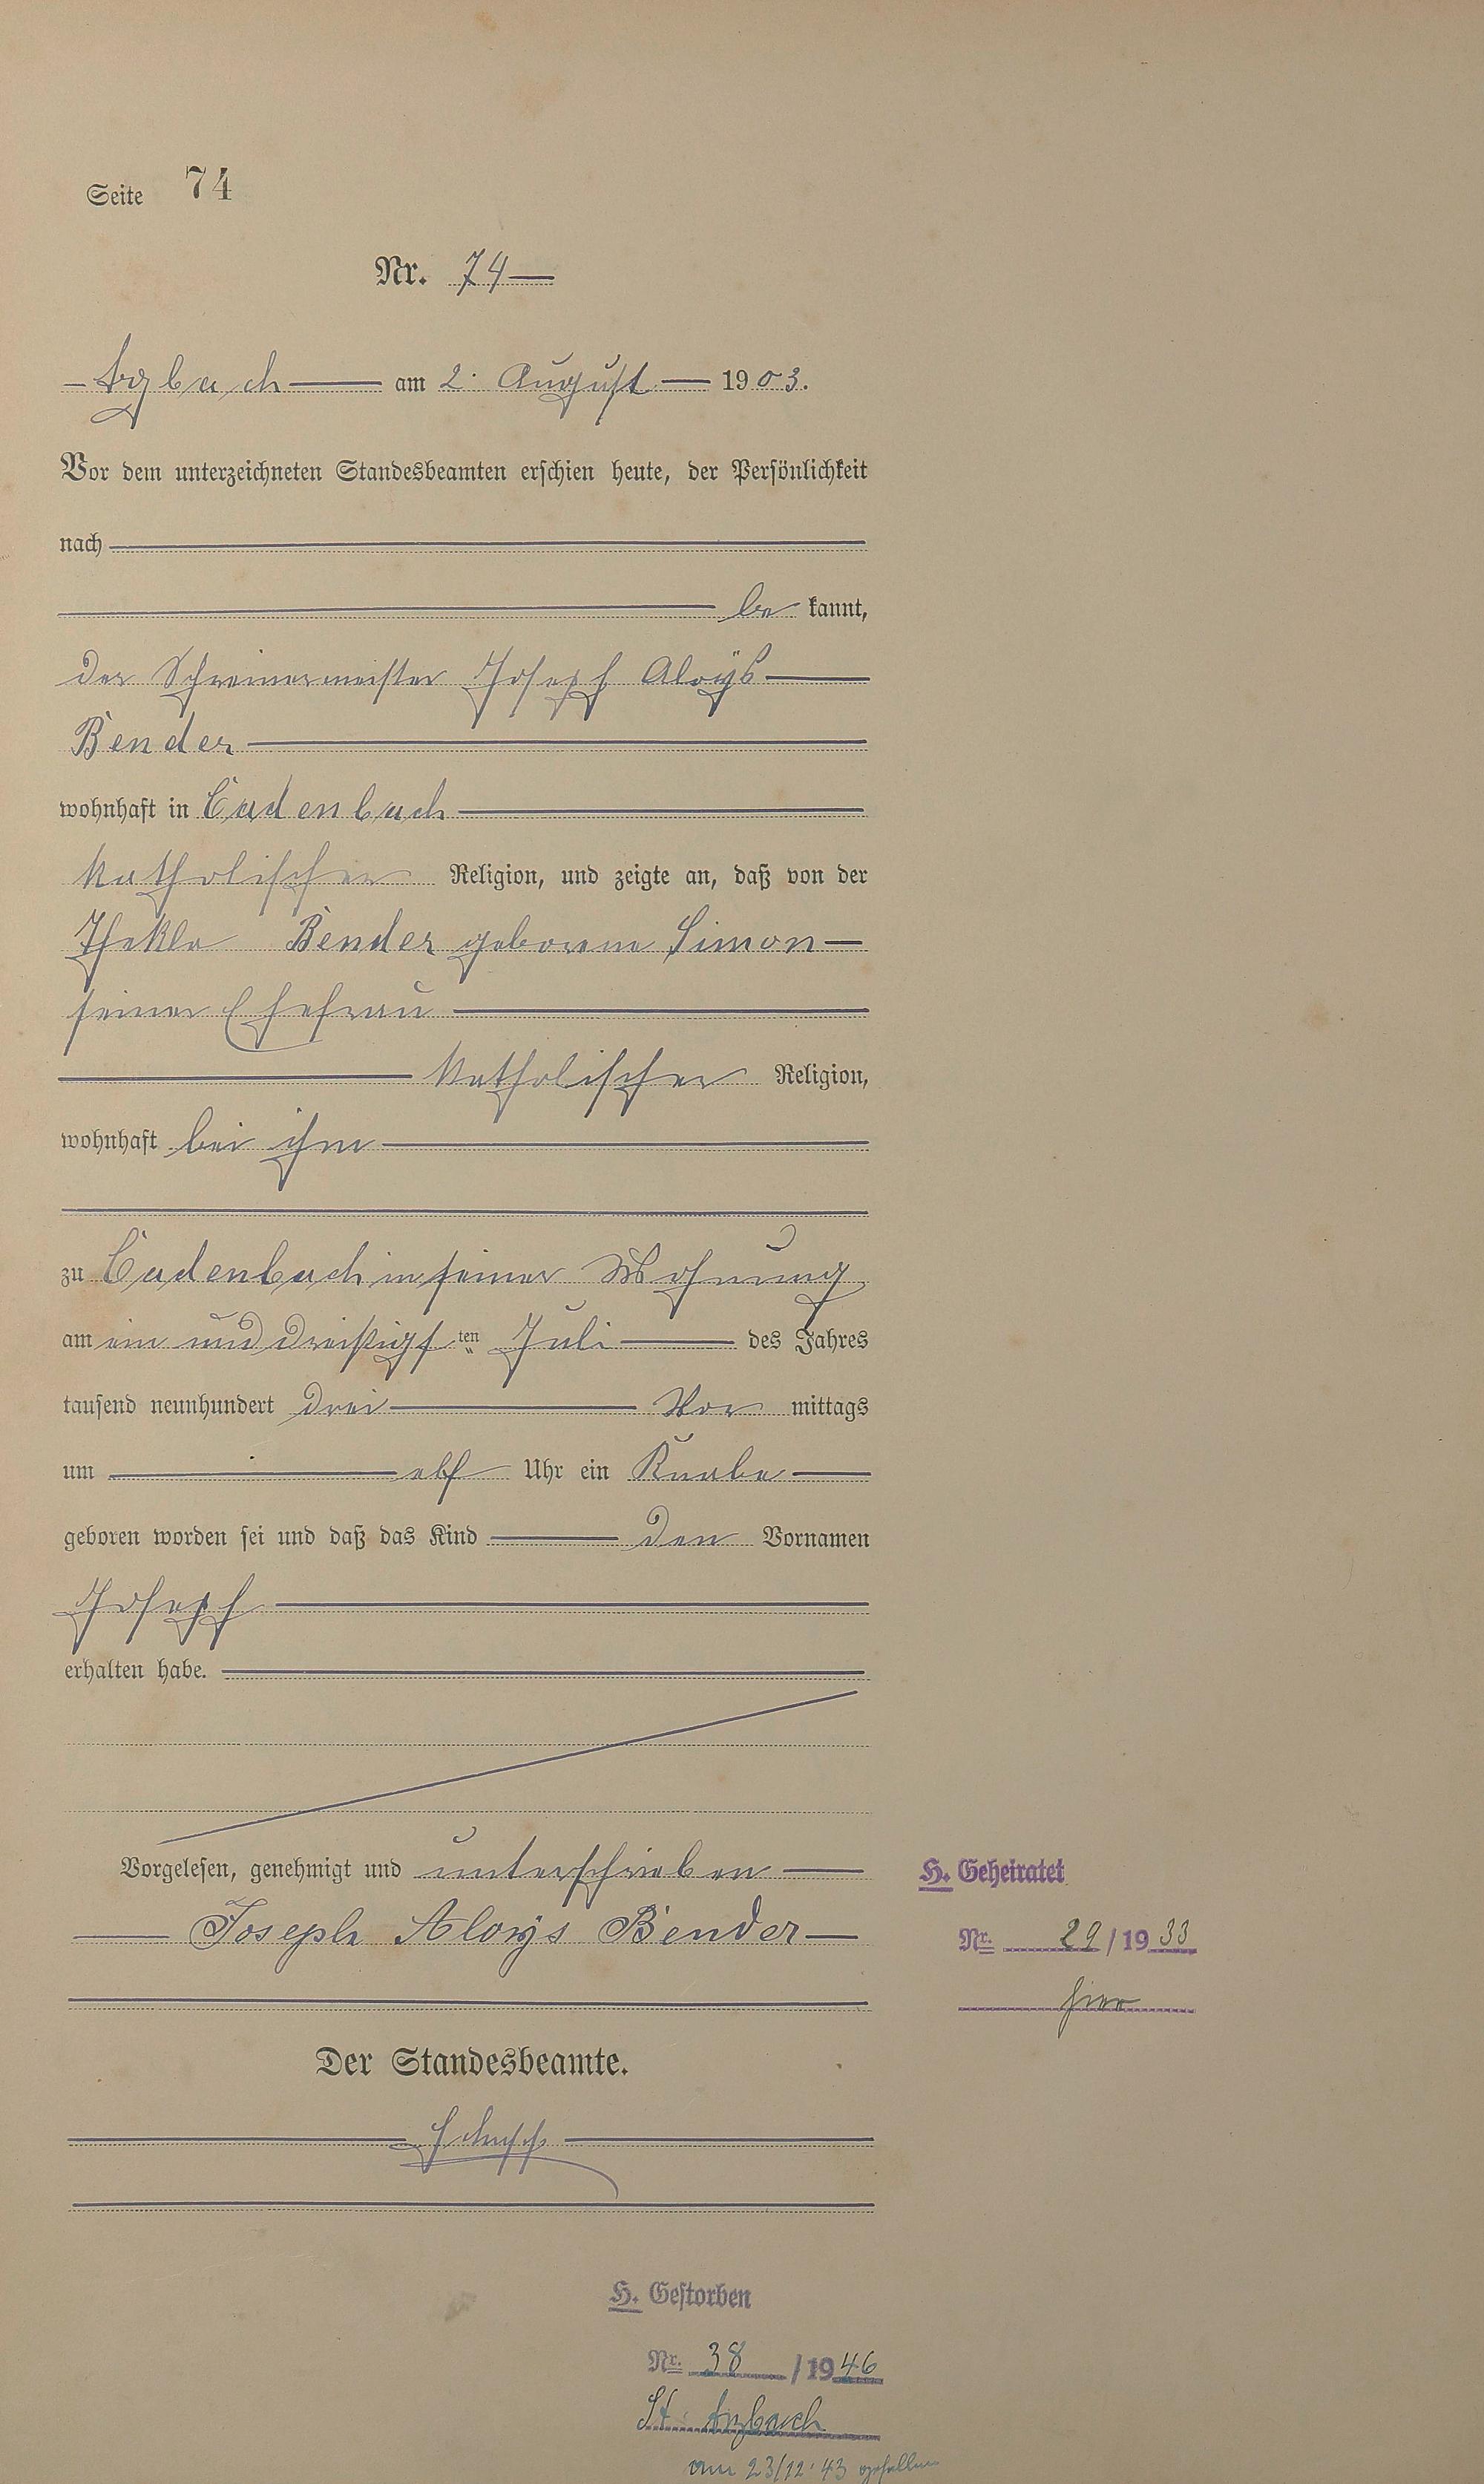 Seite 74
Nr. 74
Arzbach am 2. August 1903.
Vor dem unterzeichneten Standesbeamten erschien heute, der Persönlichkeit
nach
be kannt,
der Schreinermeister Joseph Aloÿs
Bender
wohnhaft in Cadenbach
katholischer Religion, und zeigte an, daß von der
Thekla Bender geborene Simon
seiner Ehefrau
katholischer Religion,
wohnhaft bei ihm
zu Cadenbach in seiner Wohnung
am ein und dreißigsten Juli des Jahres
tausend neunhundert drei Vor mittags
um elf Uhr ein Knabe
geboren worden sei und daß das Kind den Vornamen
Joseph
erhalten habe.
Vorgelesen, genehmigt und unterschrieben
Joseph Aloys Bender
H. Geheiratet
Nr. 29/1933
hier
Der Standesbeamte.
H. Gestorben
Nr. 38/1946
St. Arzbach
am 23/12.43 gefallen